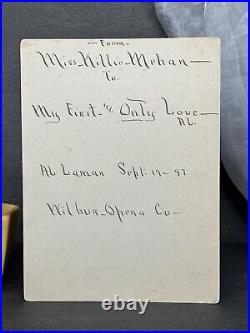 — From —
Miss Kittie Mohan
To.
My First - & Only Love —
AL.
Al Laman Sept. 19 - 97
Wilbur - Opera Co —